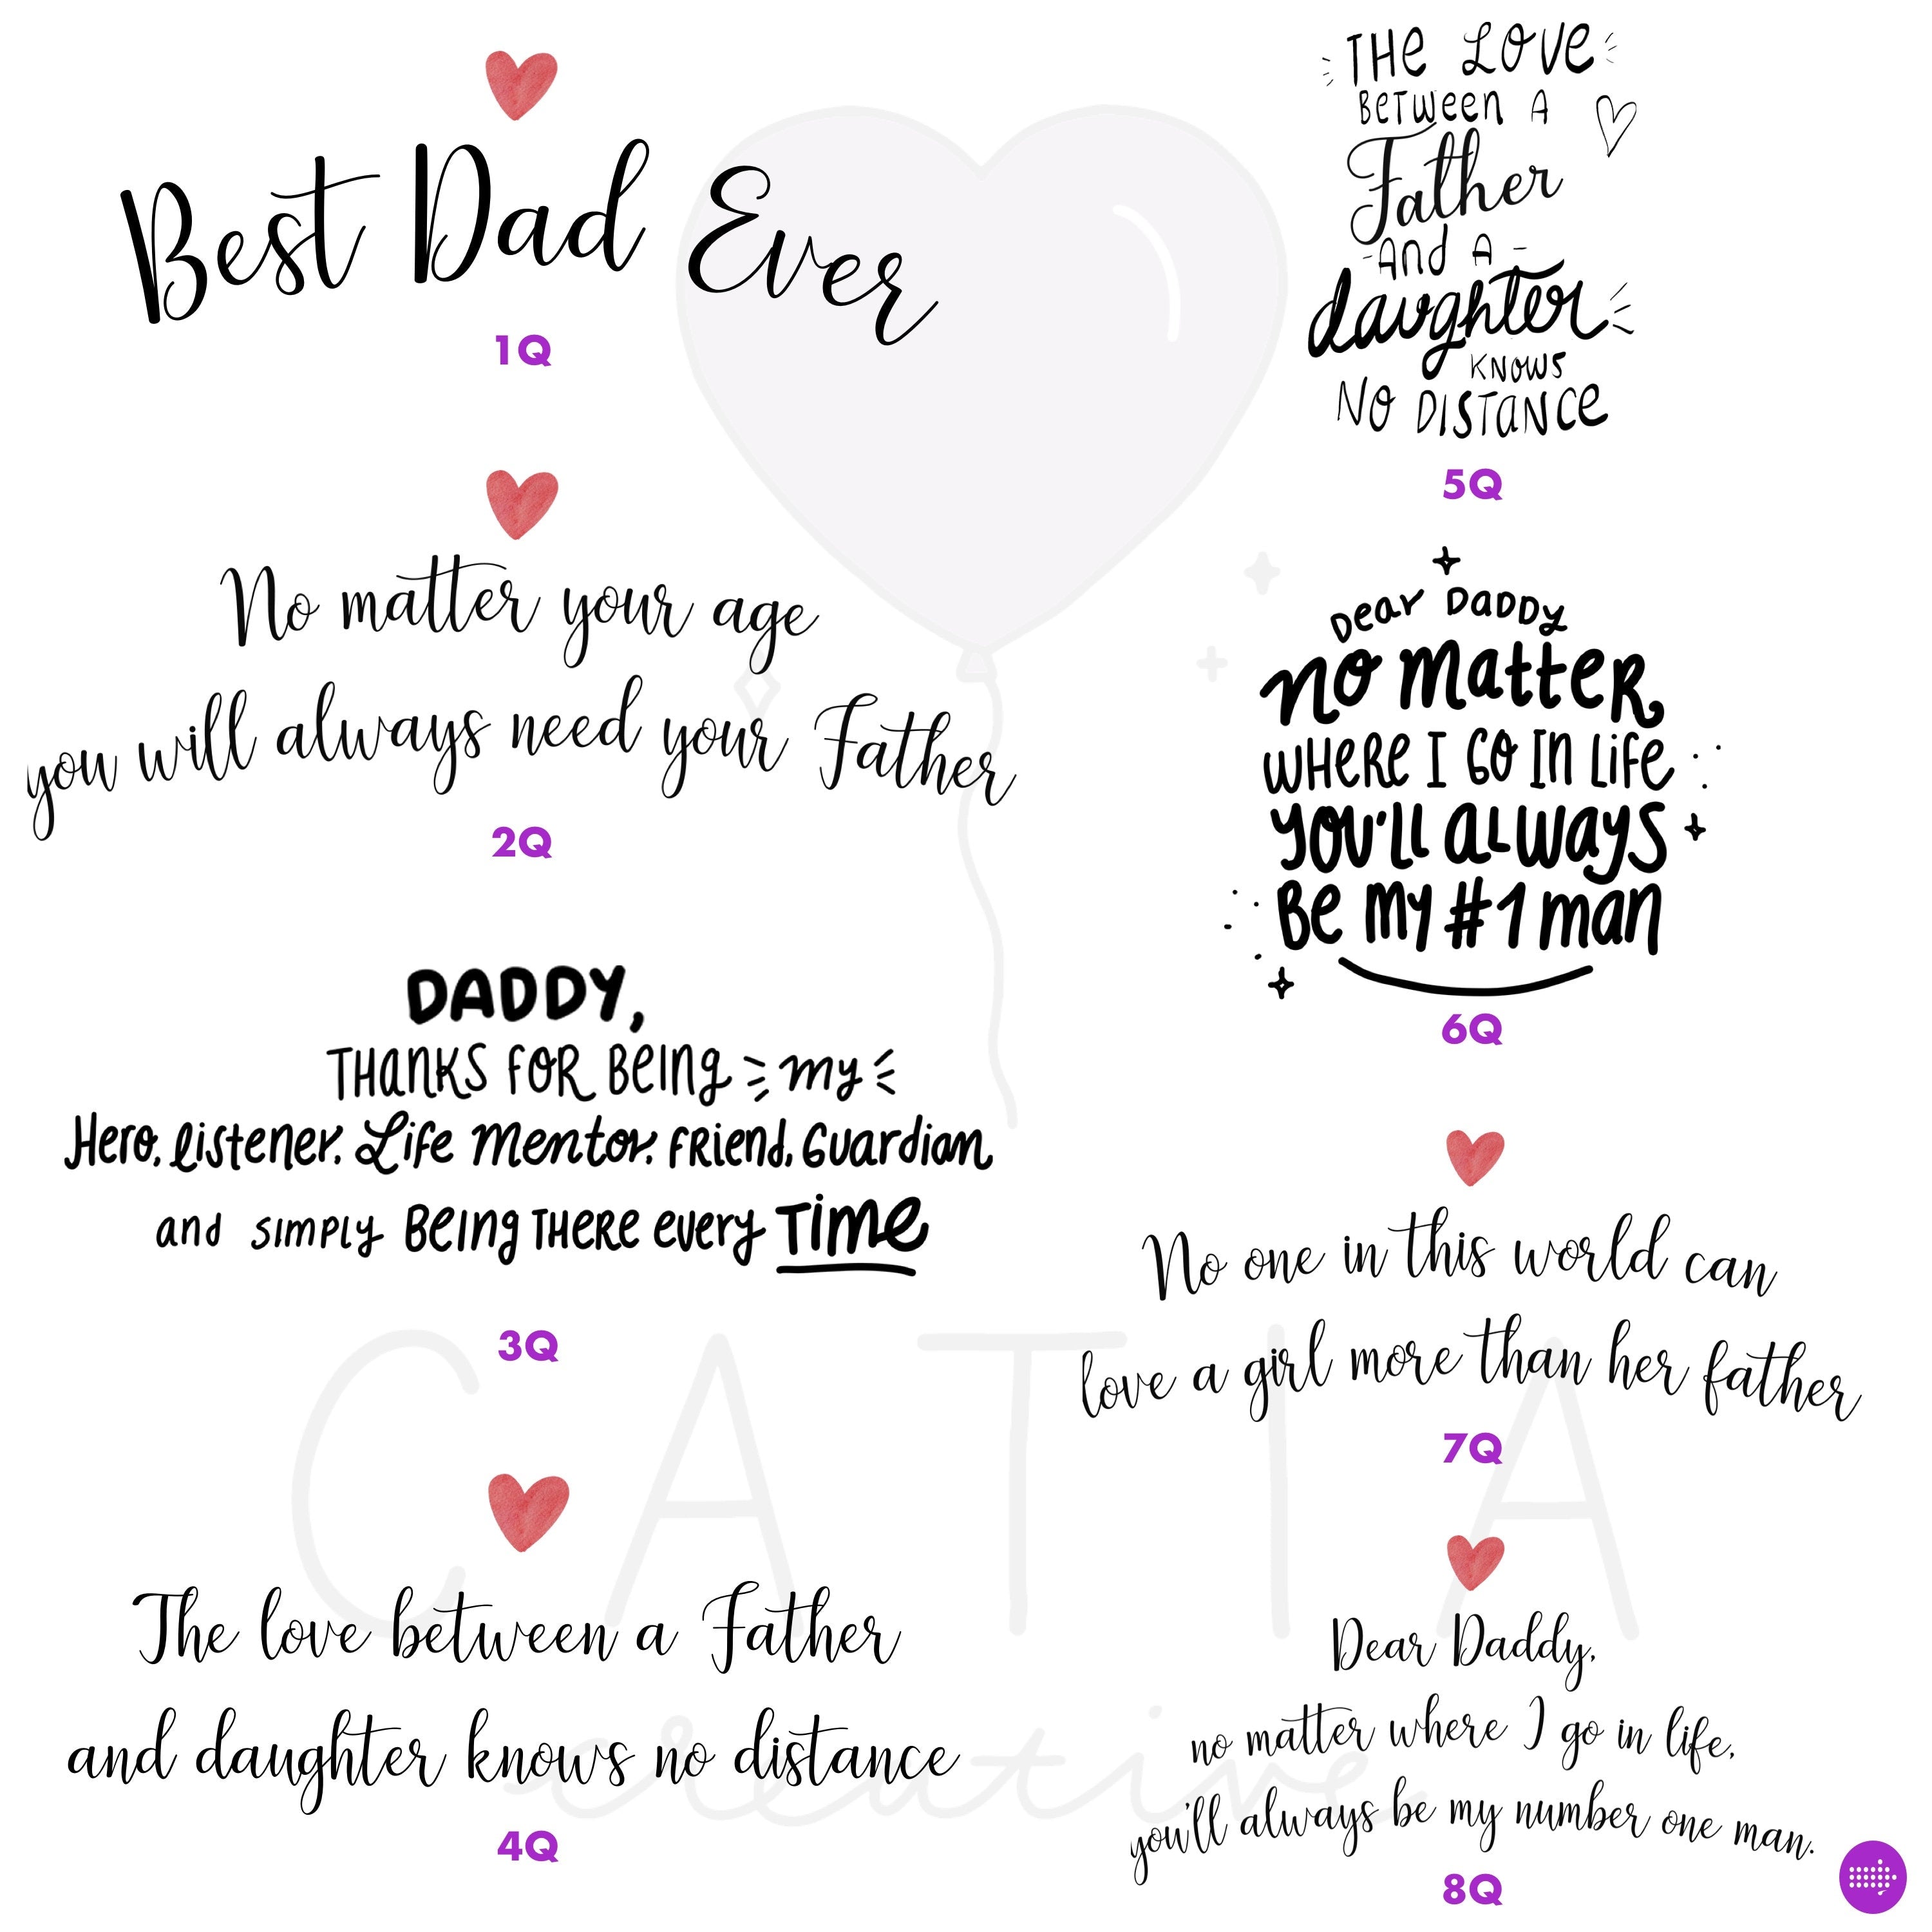 Best Dad Ever
1Q
No matter your age
you will always need your Father
2Q
DADDY,
THANKS FOR BEING my
Hero, listener, Life Mentor, FRIend, Guardian,
and SIMPLY BEING THERE every TIME
3Q
The love between a Father
and daughter knows no distance
4Q
THE LOVE
BETWEEN A
Father
AND A
daughter
KNOWS
NO DISTANCE
5Q
Dear DADDY
no MatteR
WHERE I GO IN LIFE
YOU'LL ALWAYS
Be MY #1 man
6Q
No one in this world can
love a girl more than her father
7Q
Dear Daddy,
no matter where I go in life,
you'll always be my number one man.
8Q
CATIA
creative